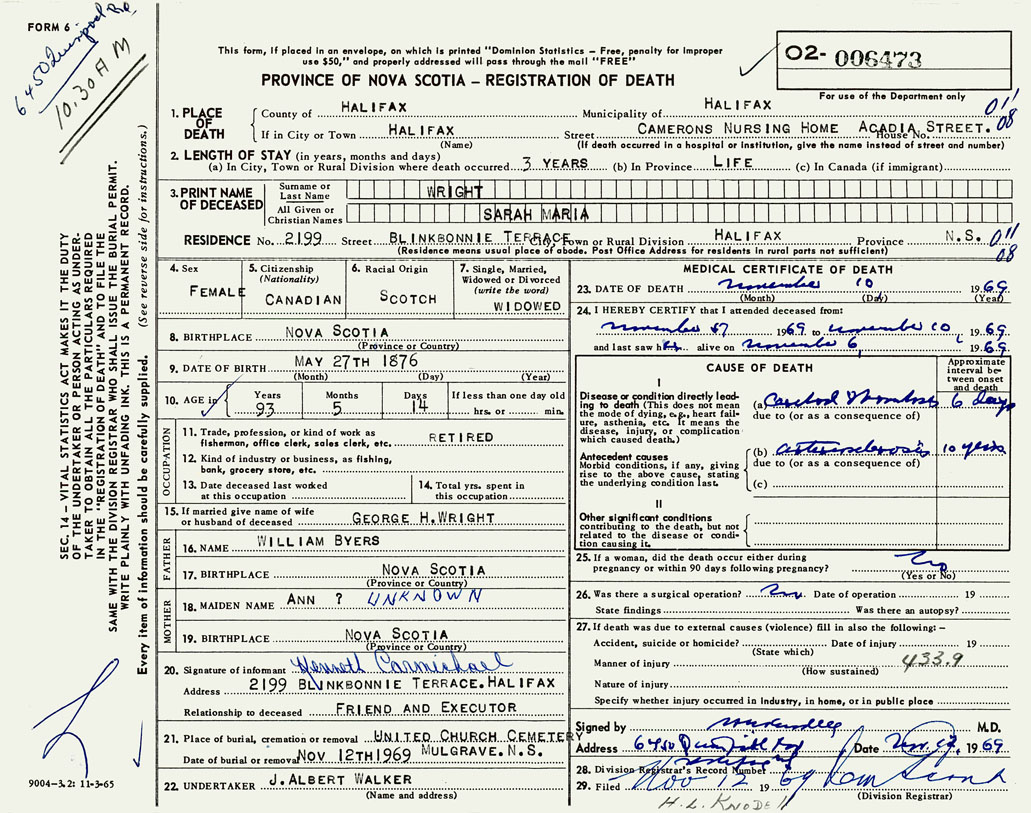 FORM 6
6450 Liverpool Rd.
10.30 A M
This form, if placed in an envelope, on which is printed "Dominion Statistics – Free, penalty for improper
use $50," and properly addressed will pass through the mail "FREE"
PROVINCE OF NOVA SCOTIA – REGISTRATION OF DEATH
O2- 006473
For use of the Department only
1. PLACE OF DEATH
County of HALIFAX Municipality of HALIFAX 011
If in City or Town HALIFAX Street CAMERONS NURSING HOME ACADIA STREET. House No. 08
(Name) (If death occurred in a hospital or institution, give the name instead of street and number)
2. LENGTH OF STAY (in years, months and days)
(a) In City, Town or Rural Division where death occurred 3 YEARS (b) In Province LIFE (c) In Canada (if immigrant)
3. PRINT NAME OF DECEASED
Surname or Last Name WRIGHT
All Given or Christian Names SARAH MARIA
RESIDENCE No. 2199 Street BLINKBONNIE TERRACE City, Town or Rural Division HALIFAX Province N.S. 011
(Residence means usual place of abode. Post Office Address for residents in rural parts not sufficient) 08
4. Sex
FEMALE
5. Citizenship
(Nationality)
CANADIAN
6. Racial Origin
SCOTCH
7. Single, Married,
Widowed or Divorced
(write the word)
WIDOWED
8. BIRTHPLACE NOVA SCOTIA
(Province or Country)
9. DATE OF BIRTH MAY 27TH 1876
(Month) (Day) (Year)
10. AGE in
Years Months Days If less than one day old
93 5 14 hrs. or min.
OCCUPATION
11. Trade, profession, or kind of work as
fisherman, office clerk, sales clerk, etc. RETIRED
12. Kind of industry or business, as fishing,
bank, grocery store, etc.
13. Date deceased last worked
at this occupation
14. Total yrs. spent in
this occupation
15. If married give name of wife
or husband of deceased GEORGE H. WRIGHT
FATHER
16. NAME WILLIAM BYERS
17. BIRTHPLACE NOVA SCOTIA
(Province or Country)
MOTHER
18. MAIDEN NAME ANN ? UNKNOWN
19. BIRTHPLACE NOVA SCOTIA
(Province or Country)
20. Signature of informant Kenneth Carmichael
Address 2199 BLINKBONNIE TERRACE. HALIFAX
Relationship to deceased FRIEND AND EXECUTOR
21. Place of burial, cremation or removal UNITED CHURCH CEMETERY
Date of burial or removal NOV 12TH 1969 MULGRAVE. N.S.
22. UNDERTAKER J. ALBERT WALKER
(Name and address)
MEDICAL CERTIFICATE OF DEATH
23. DATE OF DEATH November 10 1969
(Month) (Day) (Year)
24. I HEREBY CERTIFY that I attended deceased from:
November 1969 to November 10 1969
and last saw her alive on November 6, 1969.
CAUSE OF DEATH
Approximate interval between onset and death
I
Disease or condition directly leading
to death (This does not mean
the mode of dying, e.g., heart failure,
asthenia, etc. It means the
disease, injury, or complication
which caused death.)
(a) Cerebral Thrombosis 6 days
due to (or as a consequence of)
Antecedent causes
Morbid conditions, if any, giving
rise to the above cause, stating
the underlying condition last.
(b) arteriosclerosis 10 years
due to (or as a consequence of)
(c)
II
Other significant conditions
contributing to the death, but not
related to the disease or condition
causing it.
25. If a woman, did the death occur either during
pregnancy or within 90 days following pregnancy? No
(Yes or No)
26. Was there a surgical operation? No Date of operation 19
State findings Was there an autopsy?
27. If death was due to external causes (violence) fill in also the following: –
Accident, suicide or homicide? Date of injury 19
(State which)
Manner of injury 433.9
(How sustained)
Nature of injury
Specify whether injury occurred in industry, in home, or in public place
Signed by M.D.
Address 6450 Date Nov. 12, 1969
28. Division Registrar's Record Number
29. Filed Nov 12 1969
(Division Registrar)
H. L. KNODELL
SEC. 14 – VITAL STATISTICS ACT MAKES IT THE DUTY
OF THE UNDERTAKER OR PERSON ACTING AS UNDERTAKER
TO OBTAIN ALL THE PARTICULARS REQUIRED
IN THE "REGISTRATION OF DEATH" AND TO FILE THE
SAME WITH THE DIVISION REGISTRAR WHO SHALL ISSUE THE BURIAL PERMIT.
WRITE PLAINLY WITH UNFADING INK. THIS IS A PERMANENT RECORD.
Every item of information should be carefully supplied. (See reverse side for instructions.)
9004-3.2: 11-3-65